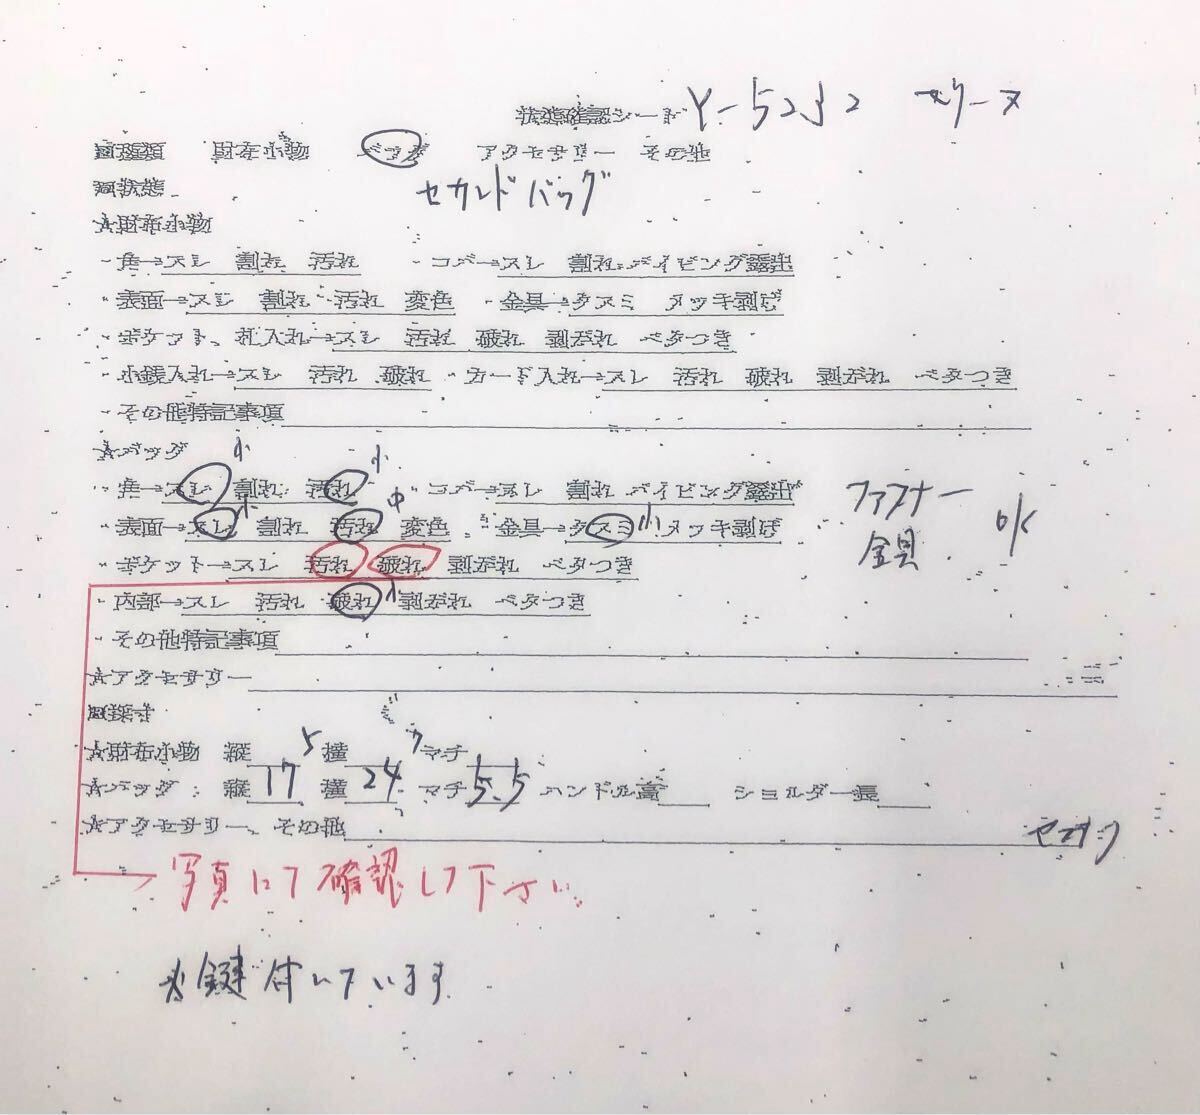 状態確認シート Y-5232 セリーヌ
回種類 財布小物 バッグ アクセサリー その他
回状態 セカンドバッグ
☆財布小物
・角→スレ 割れ 汚れ ・コバ→スレ 割れ パイピング露出
・表面→スレ 割れ 汚れ 変色 ・金具→クスミ メッキ剥げ
・ポケット、札入れ→スレ 汚れ 破れ 剥がれ ベタつき
・小銭入れ→スレ 汚れ 破れ ・カード入れ→スレ 汚れ 破れ 剥がれ ベタつき
・その他特記事項
☆バッグ 小 小
・角→スレ 割れ 汚れ ・コバ→スレ 割れ パイピング露出 ファスナー
・表面→スレ 小 割れ 汚れ 中 変色 ・金具→クスミ 小 メッキ剥げ 金具 OK
・ポケット→スレ 汚れ 破れ 剥がれ ベタつき
・内部→スレ 汚れ 破れ 小 剥がれ ベタつき
・その他特記事項
☆アクセサリー
回採寸
☆財布小物 縦 横 マチ
☆バッグ : 縦 17 横 24 マチ 5.5 ハンドル高 ショルダー長
☆アクセサリー、その他
写真にて確認して下さい。
※鍵付いています